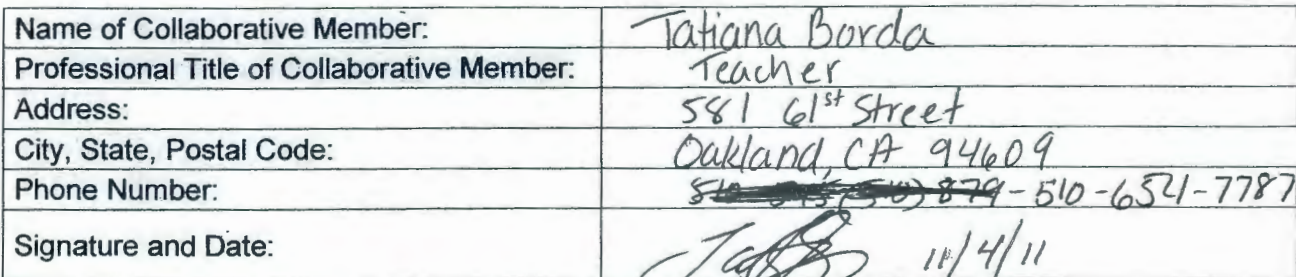 Name of Collaborative Member: Tatiana Borda
Professional Title of Collaborative Member: Teacher
Address: 581 61st Street
City, State, Postal Code: Oakland, CA 94609
Phone Number: 510-654-7787
Signature and Date: 11/4/11